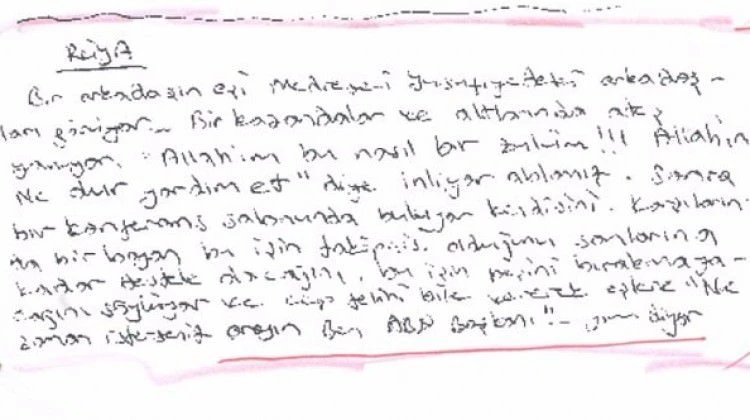 RüyA
Bir arkadaşın eşi Medresei Yusufiyedeki arkadaş-
ları görüyor... Bir kazandalar ve altlarında ateş
yanıyor. "Allahım bu nasıl bir zulüm!!! Allahım
Ne olur yardım et" diye inliyor ablamız. Sonra
bir konferans salonunda buluyor kendisini. Karşıların-
da bir bayan bu işin takipçisi olduğunu sonlarına
kadar destek olacağını, bu işin peşini bırakmaya-
cağını söylüyor ve cep telini bile vererek "Ne
zaman isterseniz arayın Ben ABD Başkanı"- diyor